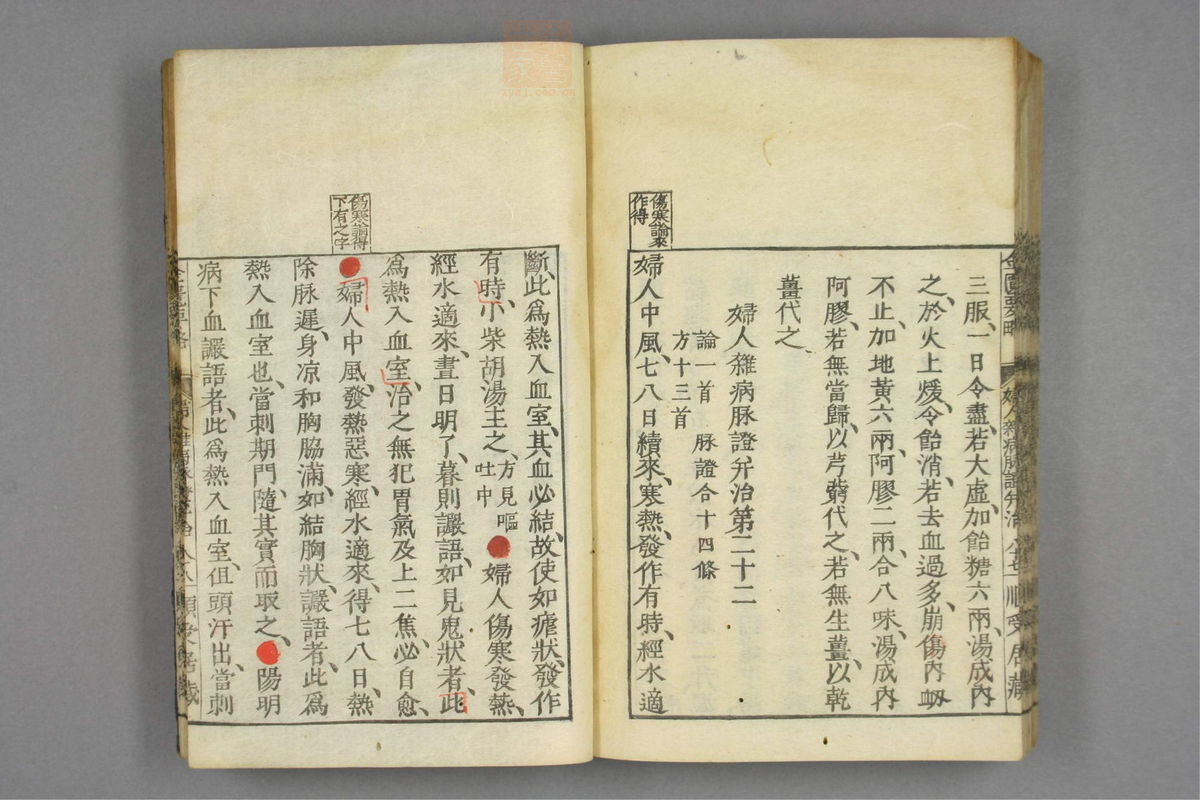 傷寒論來
作得
三服、一日令盡、若大虛、加飴糖六兩、湯成內
之、於火上煖、令飴消、若去血過多、崩傷內衂
不止、加地黃六兩、阿膠二兩、合八味、湯成內
阿膠、若無當歸、以芎藭代之、若無生薑、以乾
薑代之、
婦人雜病脉證幷治第二十二
論一首　脉證合十四條
方十三首
婦人中風、七八日續來、寒熱、發作有時、經水適
傷寒論得
下有之字
斷、此爲熱入血室、其血必結、故使如瘧狀、發作
有時、小柴胡湯主之、方見嘔
吐中
婦人傷寒發熱、
經水適來、晝日明了、暮則讝語、如見鬼狀者、此
爲熱入血室、治之無犯胃氣及上二焦、必自愈、
婦人中風、發熱惡寒、經水適來、得七八日、熱
除脉遲、身凉和、胸脇滿、如結胸狀、讝語者、此爲
熱入血室也、當刺期門、隨其實而取之、陽明
病下血讝語者、此爲熱入血室、但頭汗出、當刺
金匱要略　婦人雜病脉證幷治　順受居藏